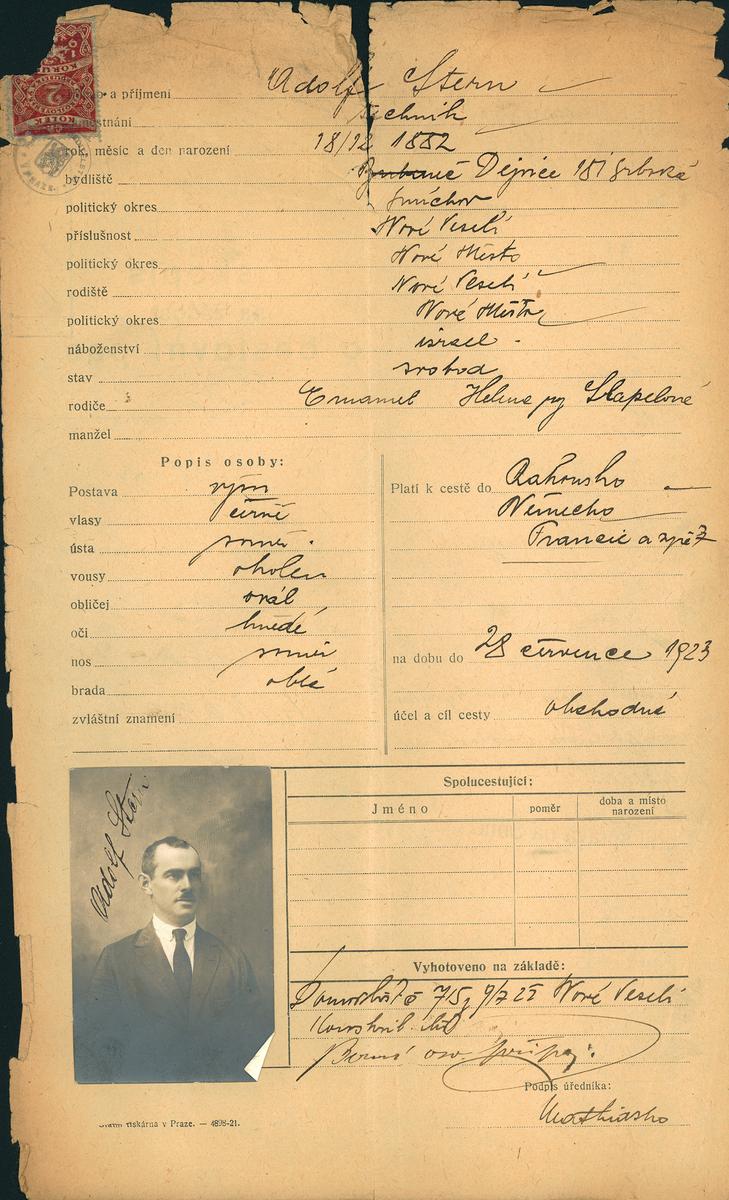 KORUN
2
KOLEK
a příjmení Adolf Stern
městnání technik
rok, měsíc a den narození 18/12 1882
bydliště Bubeneč Dejvice 181 Srbská
politický okres Smíchov
příslušnost Nové Veselí
politický okres Nové Město
rodiště Nové Veselí
politický okres Nové Město
náboženství israel.
stav svobod
rodiče Emanuel Helena
manžel
Popis osoby:
Postava
vlasy černé
ústa souměr.
vousy oholen
obličej ovál
oči hnědé
nos souměr
brada oblá
zvláštní znamení
Platí k cestě do Rakouska
Německo
Francie a zpět
na dobu do 28 července 1923
účel a cíl cesty obchodná
Adolf Stern
Spolucestující:
Jméno poměr doba a místo narození
Vyhotoveno na základě:
Nové Veselí
Podpis úředníka:
tiskárna v Praze. — 4898-21.